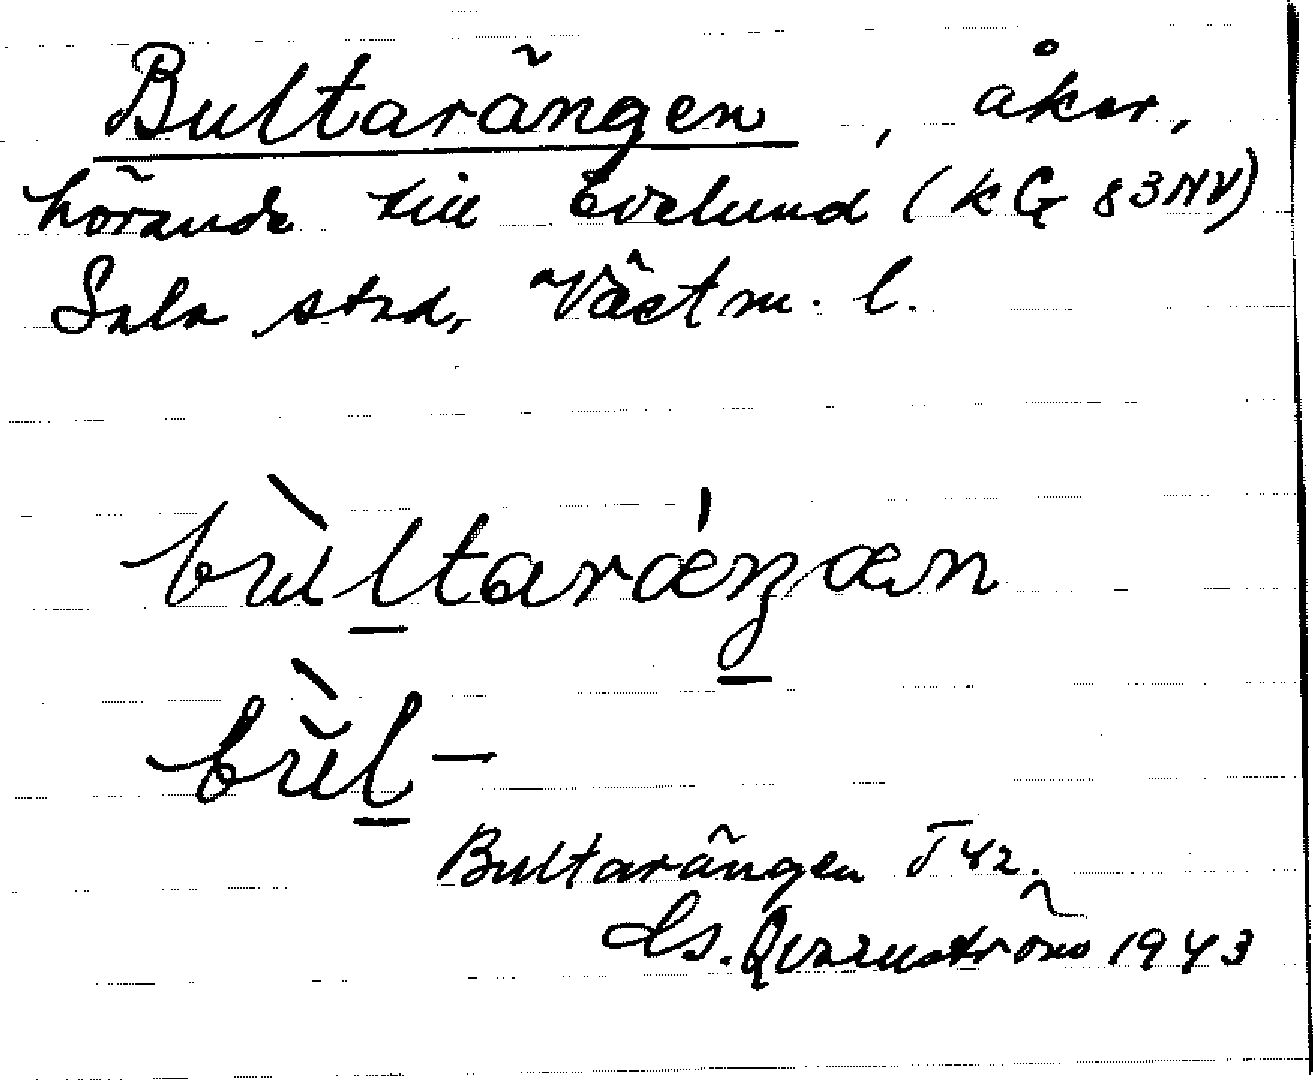 Bultarängen, åker,
hörande till Evelund (k G 83NV)
Sala stad, Västm. l.
bùltarǽŋæn
bùl-
Bultarängen T 42.
Qvarnström 1943